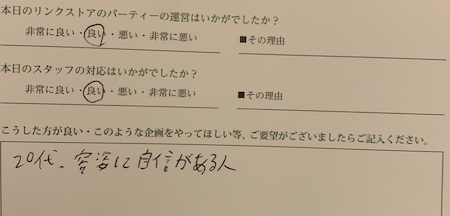 本日のリンクストアのパーティーの運営はいかがでしたか？
非常に良い・良い・悪い・非常に悪い ■その理由
本日のスタッフの対応はいかがでしたか？
非常に良い・良い・悪い・非常に悪い ■その理由
こうした方が良い・このような企画をやってほしい等、ご要望がございましたらご記入ください。
20代、容姿に自信がある人